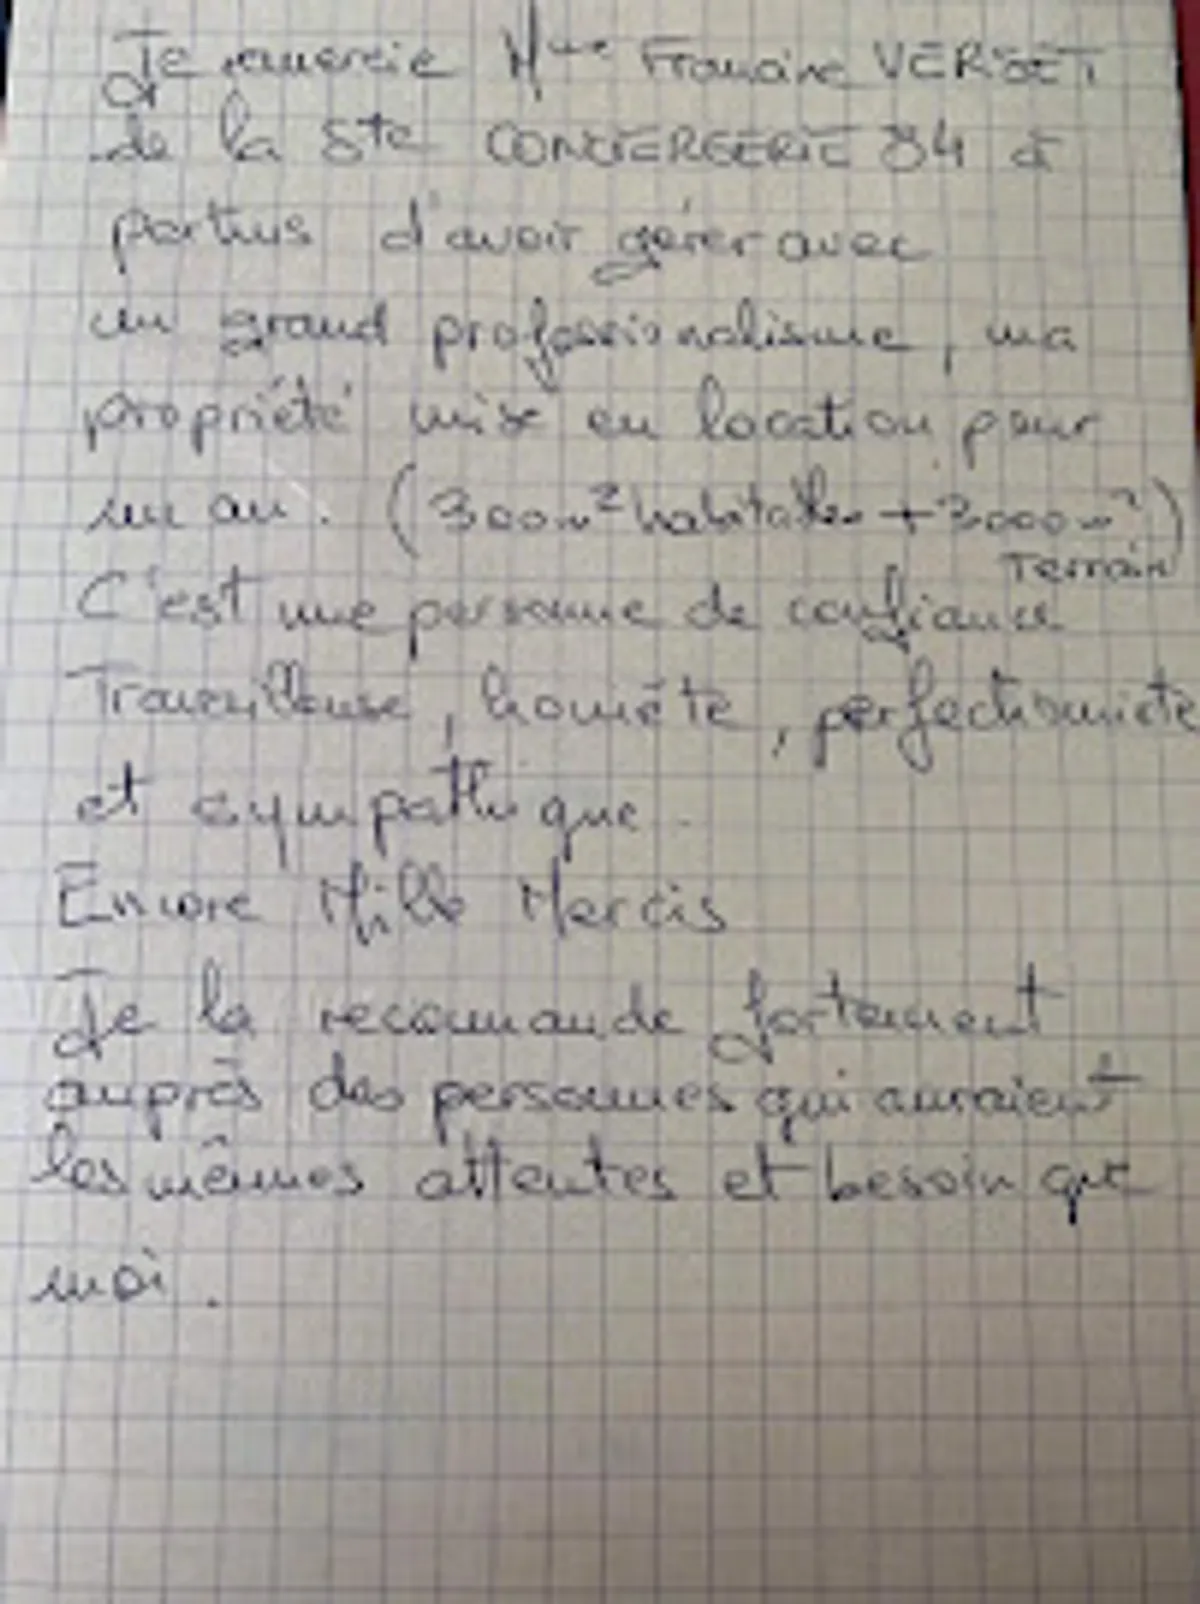 Je remercie Mme Francine
de la Ste CONCIERGERIE 84 à
pertuis d'avoir gérer avec
un grand professionnalisme, ma
propriété mise en location pour
un an. (300m² habitables + 3000m²)
Terrain
C'est une personne de confiance
Travailleuse, honnête, perfectionniste
et sympathique.
Encore Mille Mercis
Je la recommande fortement
auprès des personnes qui auraient
les mêmes attentes et besoin que
moi.